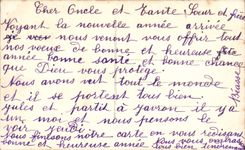 Cher Oncle et tante Soeur et frère
Voyant la nouvelle année arrivée
nous venont vous offrir tout
nos voeux de bonne et heureuse
année bonne santé et bonne chance
que Dieu vous protège.
Nous avons vut tout le monde
et il se portent tous bien
Jules et partit à Javron il y a
un moi et nous pensons le
voir Jeudi
Nous finissons notre carte en vous redisant
bonne et heureuse année